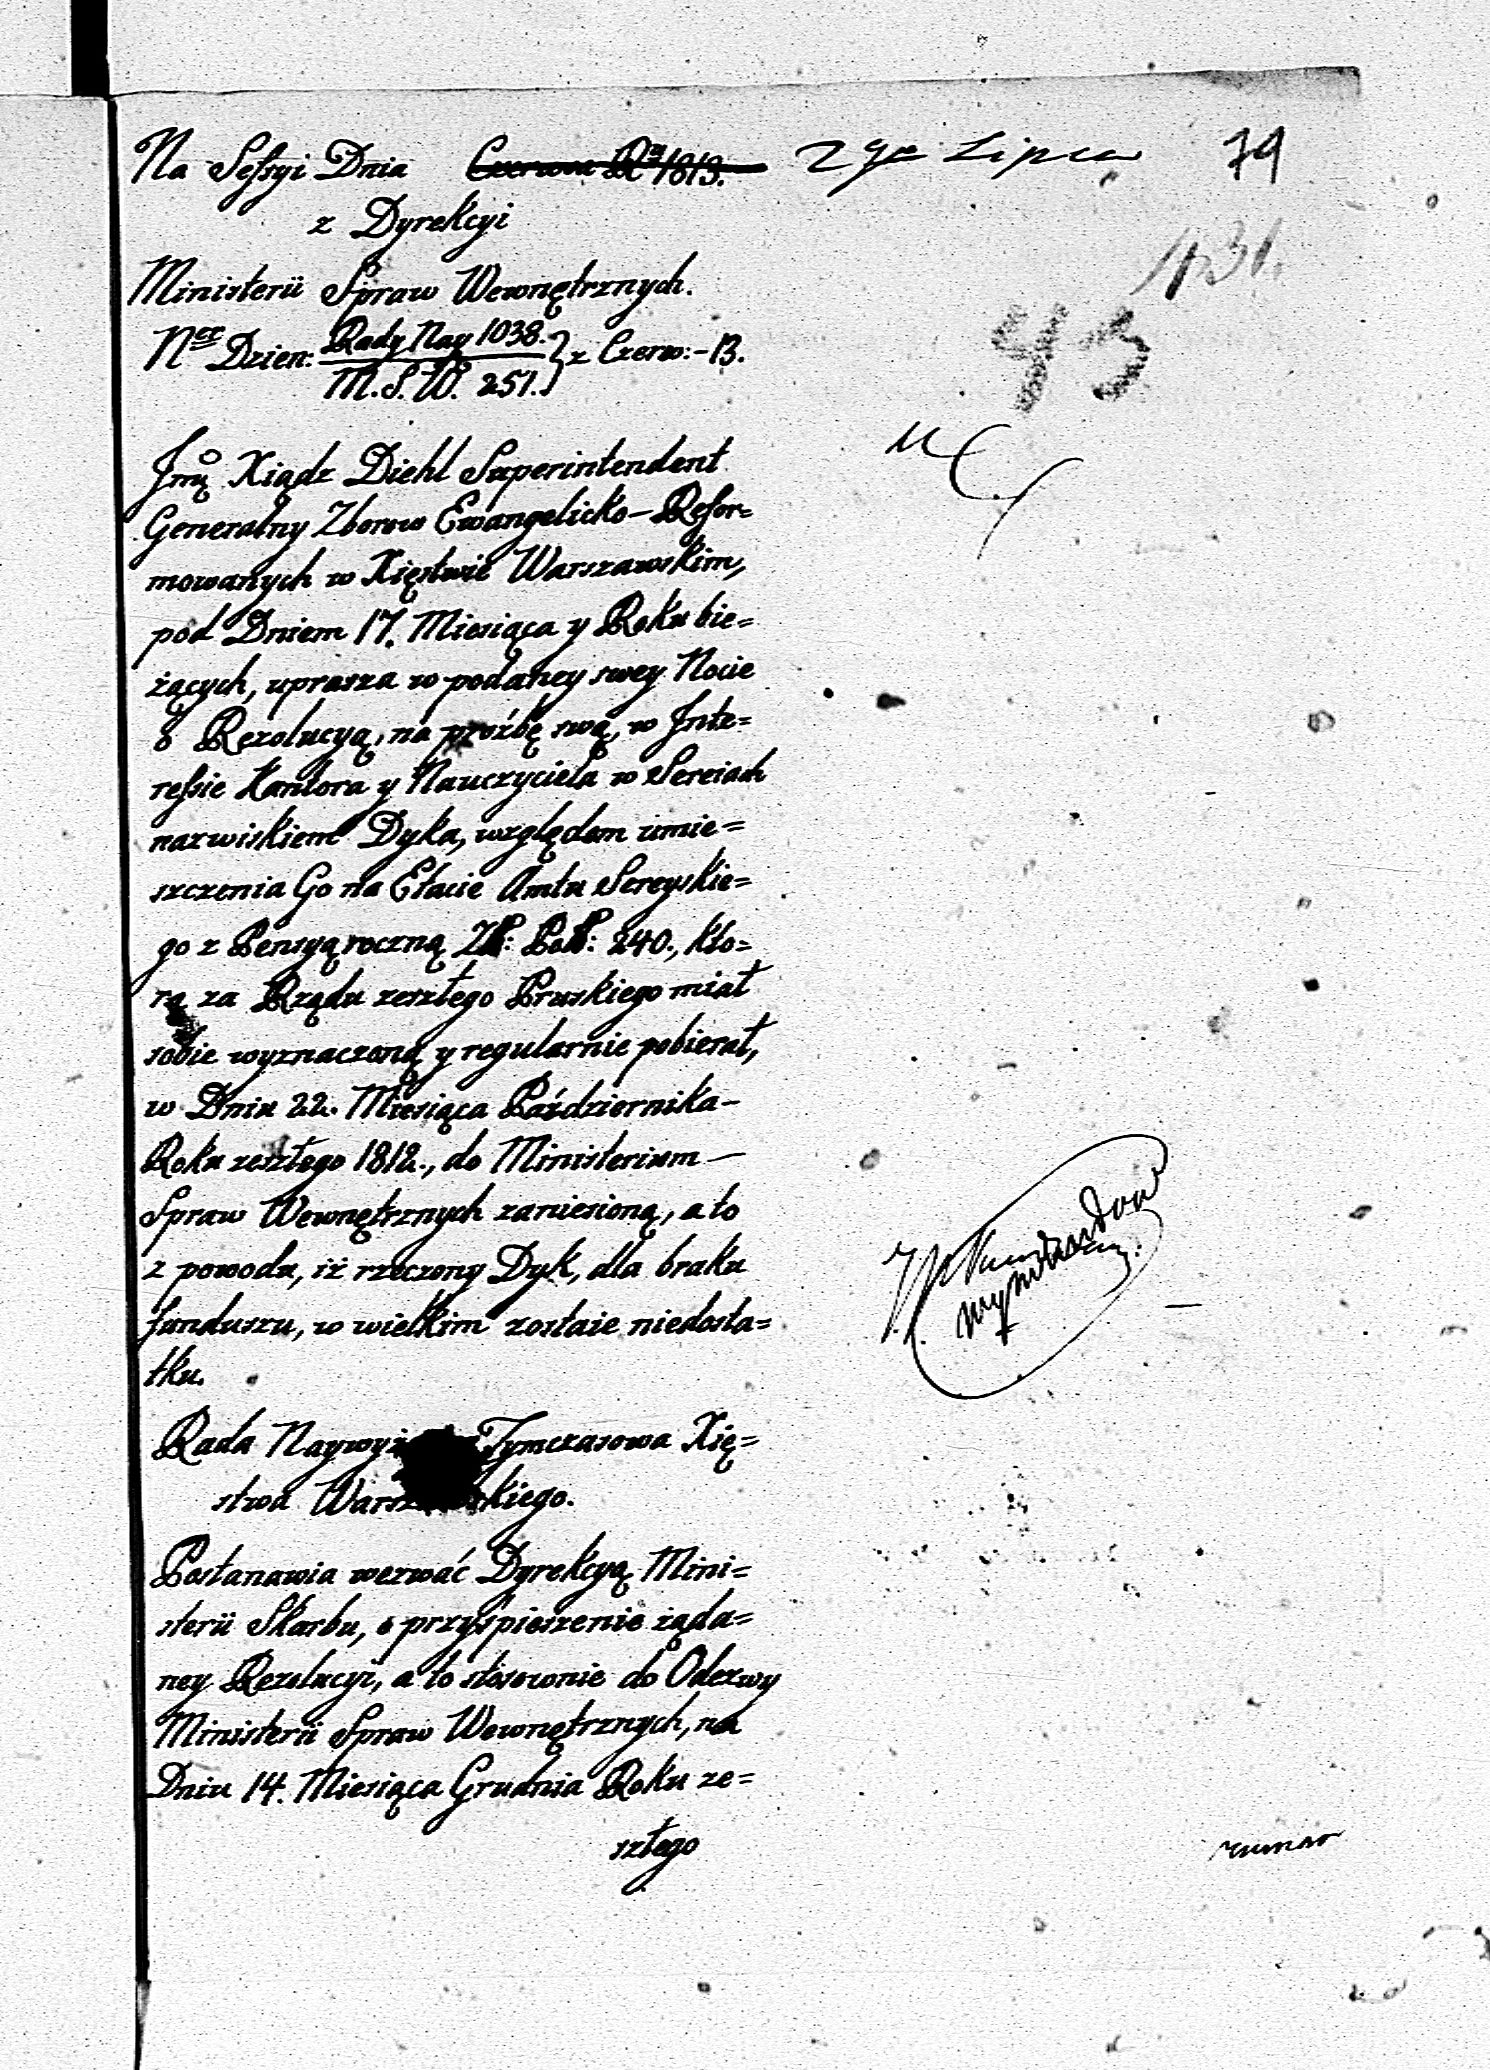 Na Sessyi Dnia Czerwca Ru 1813. 2go Lipca 79
z Dyrekcyi
431.
Ministerii Spraw Wewnętrznych.
43
Ner Dzien: Rady Nay 1038. / M. S. W. 251. } z Czerw:-13.
Jmę Xiądz Diehl Superintendent
Generalny Zborow Ewangelicko-Refor=
mowanych w Xięstwie Warszawskim,
pod Dniem 17. Miesiąca y Roku bie=
żących, uprasza w podaney swey Nocie
o Rezolucyą, na proźbę swą, w Inte=
ressie Kantora y Nauczyciela w Sereiach
nazwiskiem Dyka, względem umie=
szczenia Go na Etacie Amtu Sereyskie=
go z Pensyą roczną Zł: Pol: 240., kto=
rą za Rządu zeszłego Pruskiego miał
sobie wyznaczoną y regularnie pobierał,
w Dniu 22. Miesiąca Października-
Roku zeszłego 1812., do Ministerium-
Spraw Wewnętrznych zaniesioną, a to
z powodu, iż rzeczony Dyk, dla braku
funduszu, w wielkim zostaie niedosta=
tku.
Rada Naywyż Tymczasowa Xię=
stwa Warszawskiego.
Postanawia wezwać Dyrekcyą Mini=
sterii Skarbu, o przyśpieszenie żąda=
ney Rezolucyi, a to stosownie do Odezwy
Ministerii Spraw Wewnętrznych, na
Dniu 14. Miesiąca Grudnia Roku ze=
szłego